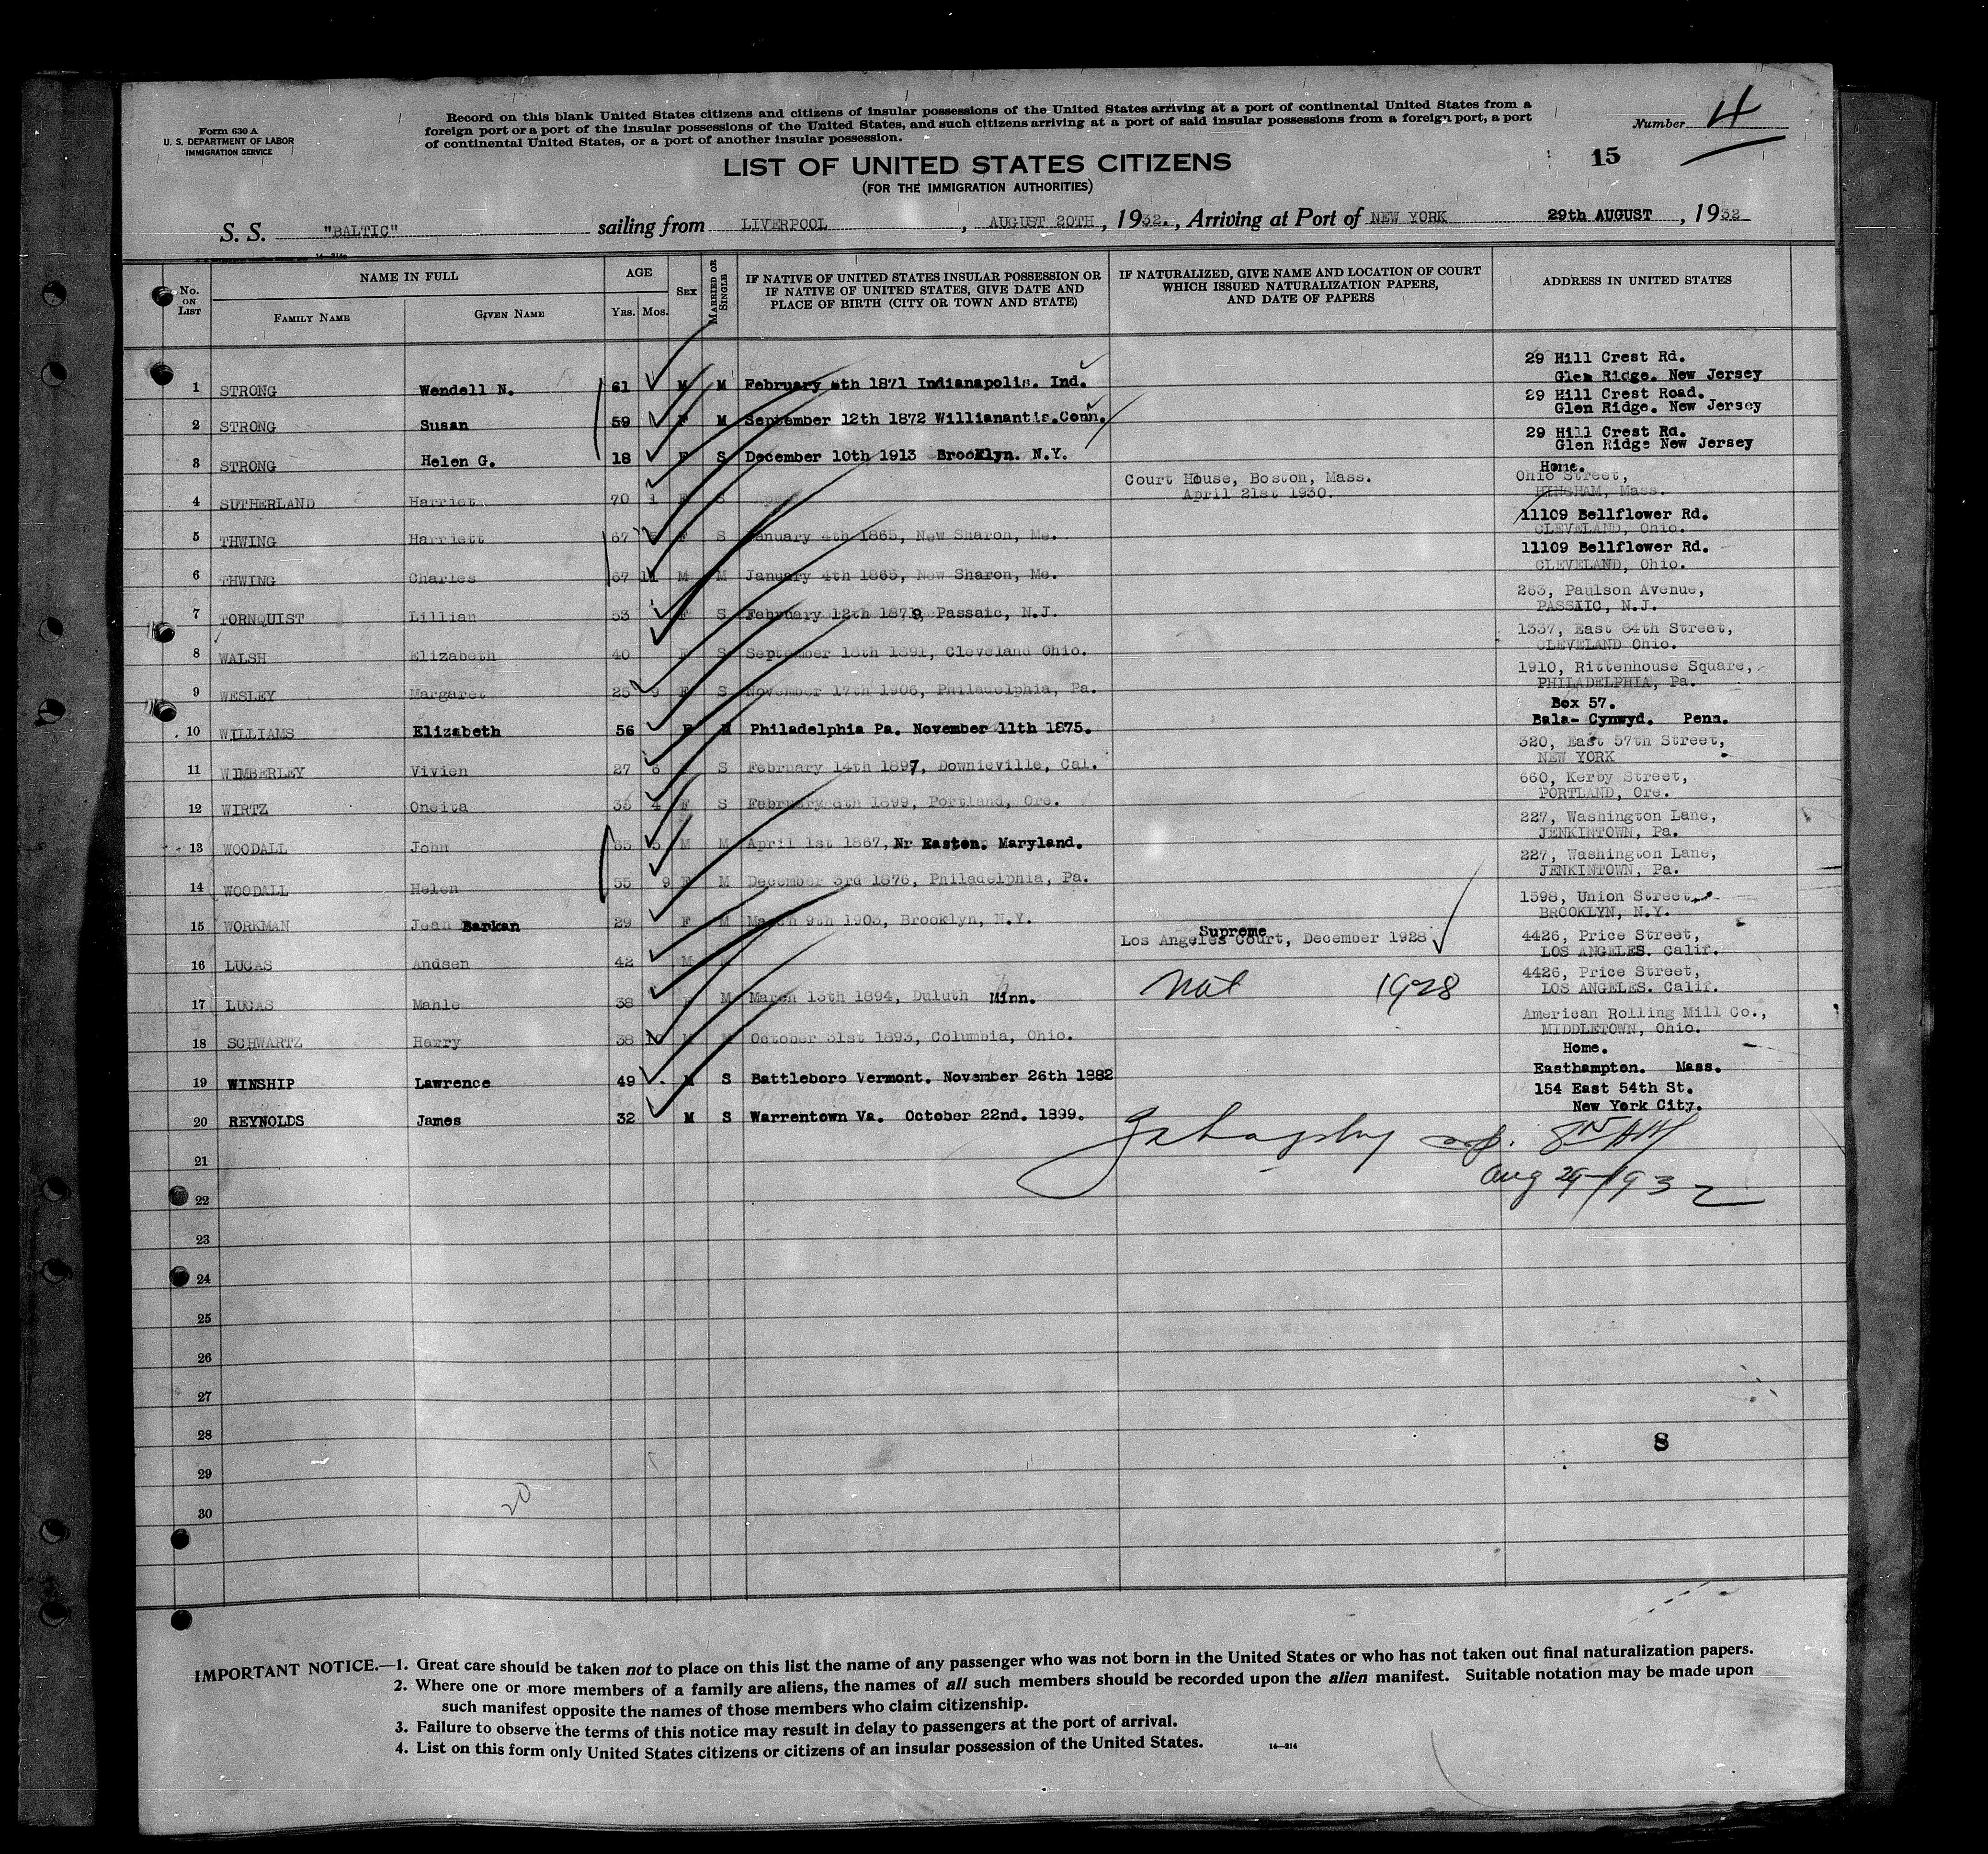 Form 630 A
U. S. DEPARTMENT OF LABOR
IMMIGRATION SERVICE
Record on this blank United States citizens and citizens of insular possessions of the United States arriving at a port of continental United States from a
foreign port or a port of the insular possessions of the United States, and such citizens arriving at a port of said insular possessions from a foreign port, a port
of continental United States, or a port of another insular possession.
Number 4
15
LIST OF UNITED STATES CITIZENS
(FOR THE IMMIGRATION AUTHORITIES)
S. S. "BALTIC" sailing from LIVERPOOL, AUGUST 20TH, 1932., Arriving at Port of NEW YORK 29th AUGUST, 1932
No. ON LIST
NAME IN FULL
FAMILY NAME
GIVEN NAME
AGE
YRS. MOS.
SEX
MARRIED OR SINGLE
IF NATIVE OF UNITED STATES INSULAR POSSESSION OR
IF NATIVE OF UNITED STATES, GIVE DATE AND
PLACE OF BIRTH (CITY OR TOWN AND STATE)
IF NATURALIZED, GIVE NAME AND LOCATION OF COURT
WHICH ISSUED NATURALIZATION PAPERS,
AND DATE OF PAPERS
ADDRESS IN UNITED STATES
29 Hill Crest Rd.
1 STRONG Wendell N. 61 M M February 4th 1871 Indianapolis. Ind. Glen Ridge. New Jersey
29 Hill Crest Road.
2 STRONG Susan 59 F M September 12th 1872 Willianantis.Conn. Glen Ridge. New Jersey
29 Hill Crest Rd.
3 STRONG Helen G. 18 F S December 10th 1913 Brooklyn. N.Y. Glen Ridge New Jersey
Home.
Court House, Boston, Mass. Ohio Street,
4 SUTHERLAND Harriet 70 1 F S April 21st 1930. HINGHAM, Mass.
11109 Bellflower Rd.
5 THWING Harriett 67 F S January 4th 1865, New Sharon, Me. CLEVELAND, Ohio.
11109 Bellflower Rd.
6 THWING Charles 67 11 M M January 4th 1865, New Sharon, Me. CLEVELAND, Ohio.
263, Paulson Avenue,
7 TORNQUIST Lillian 53 F S February 12th 1879, Passaic, N.J. PASSIIC, N.J.
1337, East 84th Street,
8 WALSH Elizabeth 40 F S September 18th 1891, Cleveland Ohio. CLEVELAND Ohio.
1910, Rittenhouse Square,
9 WESLEY Margaret 25 9 F S November 17th 1906, Philadelphia, Pa. PHILADELPHIA, Pa.
Box 57.
10 WILLIAMS Elizabeth 56 F M Philadelphia Pa. November 11th 1875. Bala- Cynwyd. Penn.
320, East 57th Street,
11 WIMBERLEY Vivien 27 6 S February 14th 1897, Downieville, Cal. NEW YORK
660, Kerby Street,
12 WIRTZ Oneita 33 4 F S February 6th 1899, Portland, Ore. PORTLAND, Ore.
227, Washington Lane,
13 WOODALL John 65 5 M M April 1st 1867, Nr Easton. Maryland. JENKINTOWN, Pa.
227, Washington Lane,
14 WOODALL Helen 55 9 F M December 3rd 1876, Philadelphia, Pa. JENKINTOWN, Pa.
1598, Union Street,
15 WORKMAN Jean Barkan 29 F M March 9th 1903, Brooklyn, N.Y. BROOKLYN, N.Y.
Supreme
Los Angeles Court, December 1928 4426, Price Street,
16 LUCAS Andsen 42 M LOS ANGELES. Calif.
4426, Price Street,
17 LUCAS Mahle 38 F M March 13th 1894, Duluth Minn. Nat 1928 LOS ANGELES. Calif.
American Rolling Mill Co.,
18 SCHWARTZ Harry 38 10 M M October 31st 1893, Columbia, Ohio. MIDDLETOWN, Ohio.
Home.
19 WINSHIP Lawrence 49 M S Battleboro Vermont. November 26th 1882 Easthampton. Mass.
154 East 54th St.
20 REYNOLDS James 32 M S Warrentown Va. October 22nd. 1899. New York City.
21
Aug 29-1932
22
23
24
25
26
27
28
8
29
30
20
IMPORTANT NOTICE.—1. Great care should be taken not to place on this list the name of any passenger who was not born in the United States or who has not taken out final naturalization papers.
2. Where one or more members of a family are aliens, the names of all such members should be recorded upon the alien manifest. Suitable notation may be made upon
such manifest opposite the names of those members who claim citizenship.
3. Failure to observe the terms of this notice may result in delay to passengers at the port of arrival.
4. List on this form only United States citizens or citizens of an insular possession of the United States. 14—214